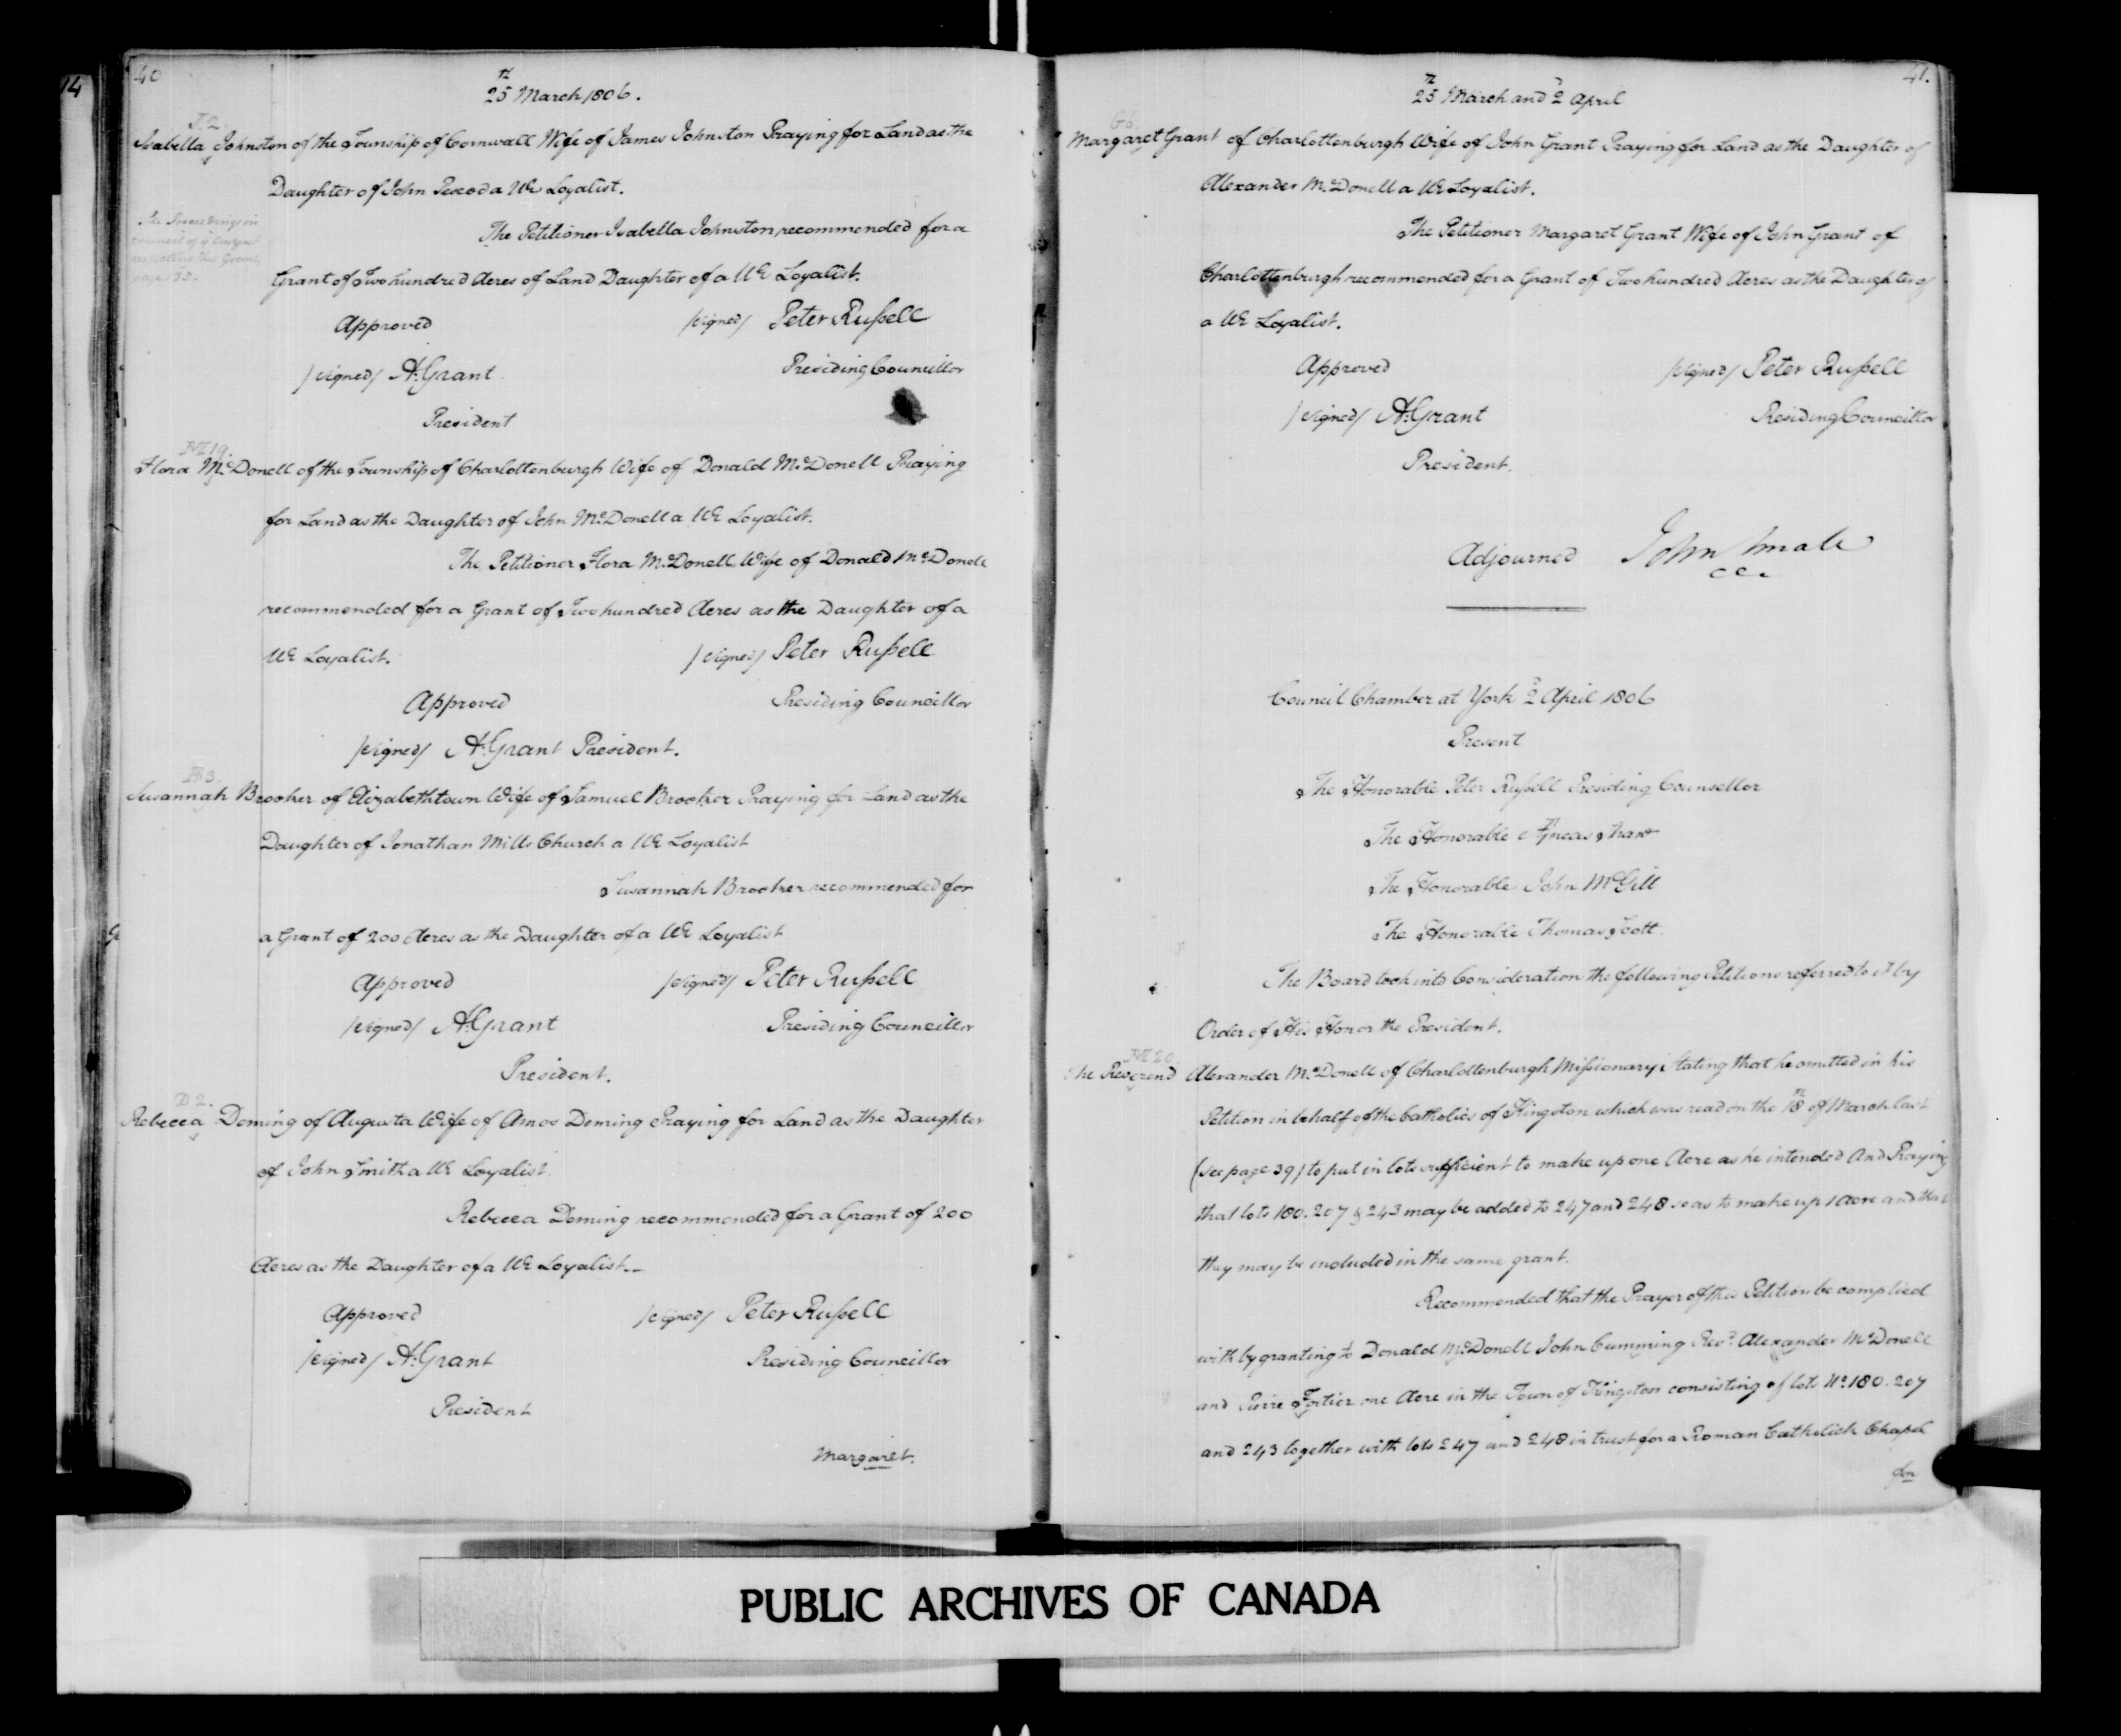 14
40
25th March 1806.
J 2.
Isabella Johnston of the Township of Cornwall Wife of James Johnston Praying for Land as the
Daughter of John Pescod a UE Loyalist.
The Proceedings in
Council of 4 August
respecting this Grant
page 133.
The Petitioner Isabella Johnston recommended for a
Grant of Two hundred Acres of Land Daughter of a UE Loyalist.
Approved /signed/ Peter Russell
/signed/ A. Grant Presiding Councillor
President
M 19
Flora McDonell of the Township of Charlottenburgh Wife of Donald McDonell Praying
for Land as the Daughter of John McDonell a UE Loyalist.
The Petitioner Flora McDonell Wife of Donald McDonell
recommended for a Grant of Two hundred Acres as the Daughter of a
UE Loyalist. /signed/ Peter Russell
Approved Presiding Councillor
/signed/ A. Grant President.
B 3.
Susannah Brooker of Elizabethtown Wife of Samuel Brooker Praying for Land as the
Daughter of Jonathan Mills Church a UE Loyalist
Susannah Brooker recommended for
a Grant of 200 Acres as the Daughter of a UE Loyalist
Approved /signed/ Peter Russell
/signed/ A. Grant Presiding Councillor
President.
D 2.
Rebecca Deming of Augusta Wife of Amos Deming Praying for Land as the Daughter
of John Smith a UE Loyalist.
Rebecca Deming recommended for a Grant of 200
Acres as the Daughter of a UE Loyalist.
Approved /signed/ Peter Russell
/signed/ A. Grant Presiding Councillor
President
Margaret.
41.
25th March and 2d April
Margaret Grant of Charlottenburgh Wife of John Grant Praying for Land as the Daughter of
Alexander McDonell a UE Loyalist.
The Petitioner Margaret Grant Wife of John Grant of
Charlottenburgh recommended for a Grant of Two hundred Acres as the Daughter of
a UE Loyalist.
Approved /signed/ Peter Russell
/signed/ A. Grant Presiding Councillor
President.
Adjourned John Small
CEC
Council Chamber at York 2d April 1806
Present
The Honorable Peter Russell Presiding Counsellor
The Honorable Æneas Shaw
The Honorable John McGill
The Honorable Thomas Scott.
The Board took into Consideration the following Petitions referred to it by
Order of His Honor the President.
M 20.
The Reverend Alexander McDonell of Charlottenburgh Missionary Stating that he omitted in his
Petition in behalf of the Catholics of Kingston which was read on the 18th of March last
(see page 39) to put in lots sufficient to make up one Acre as he intended And Praying
that lots 180. 207 & 243 may be added to 247 and 248 so as to make up 1 acre and that
they may be included in the same grant.
Recommended that the Prayer of this Petition be complied
with by granting to Donald McDonell John Cumming Revd. Alexander McDonell
and Pierre Fortier one Acre in the Town of Kingston consisting of lots No. 180. 207
and 243 together with lots 247 and 248 in trust for a Roman Catholick Chapel
for
PUBLIC ARCHIVES OF CANADA